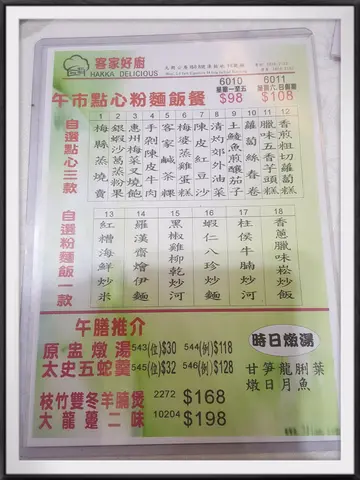 客家好廚
HAKKA DELICIOUS
6010
星期一至五
$98
6011
$108
午市點心粉麵飯餐
自選點心三款
1 梅縣蒸燒賣
2 銀蝦沙葛蒸粉果
3 惠州梅菜叉燒飽
4 手剁陳皮牛肉
5 客家鹹茶粿
6 梅婆蒸雞蛋糕
7 陳皮紅豆沙
8 清灼郊外油菜
9 土鯪魚煎釀茄子
10 蘿蔔絲春卷
11 臘味五香芋頭糕
12 香煎粗切蘿蔔糕
自選粉麵飯一款
13 紅糟海鮮炒米
14 羅漢齋燴伊麵
15 黑椒雞柳乾炒河
16 蝦仁八珍炒麵
17 柱侯牛腩炒河
18 香蔥臘味崧炒飯
午膳推介
原盅燉湯 543(位)$30 544(例)$118
太史五蛇羹 545(位)$32 546(例)$128
枝竹雙冬羊腩煲 2272 $168
大龍躉二味 10204 $198
時日燉湯
甘筍龍脷葉
燉日月魚